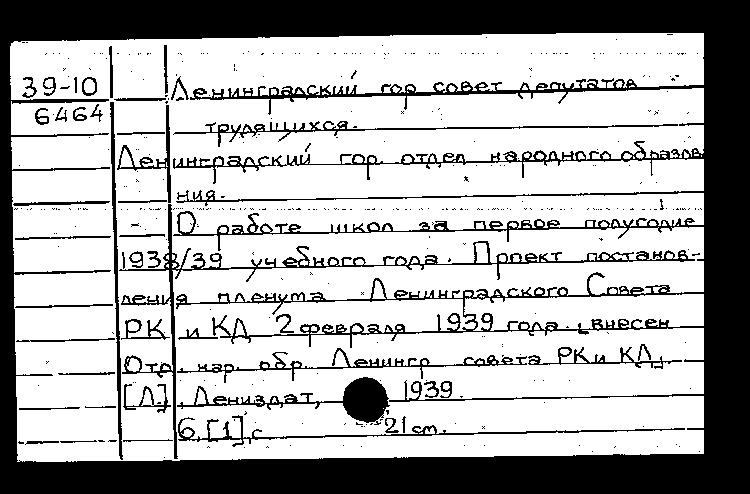 39-10 Ленинградский гор совет депутатов
6464 трудящихся.
Ленинградский гор. отдел народного образова
ния.
О работе школ за первое полугодие
1938/39 учебного года. Проект постанов-
ления пленума Ленинградского Совета
РК и КД 2 февраля 1939 года. [внесен
Отд. нар. обр. Ленингр совета РК и КД]
[Л], Лениздат, 1939.
6, [1] с 21 см.